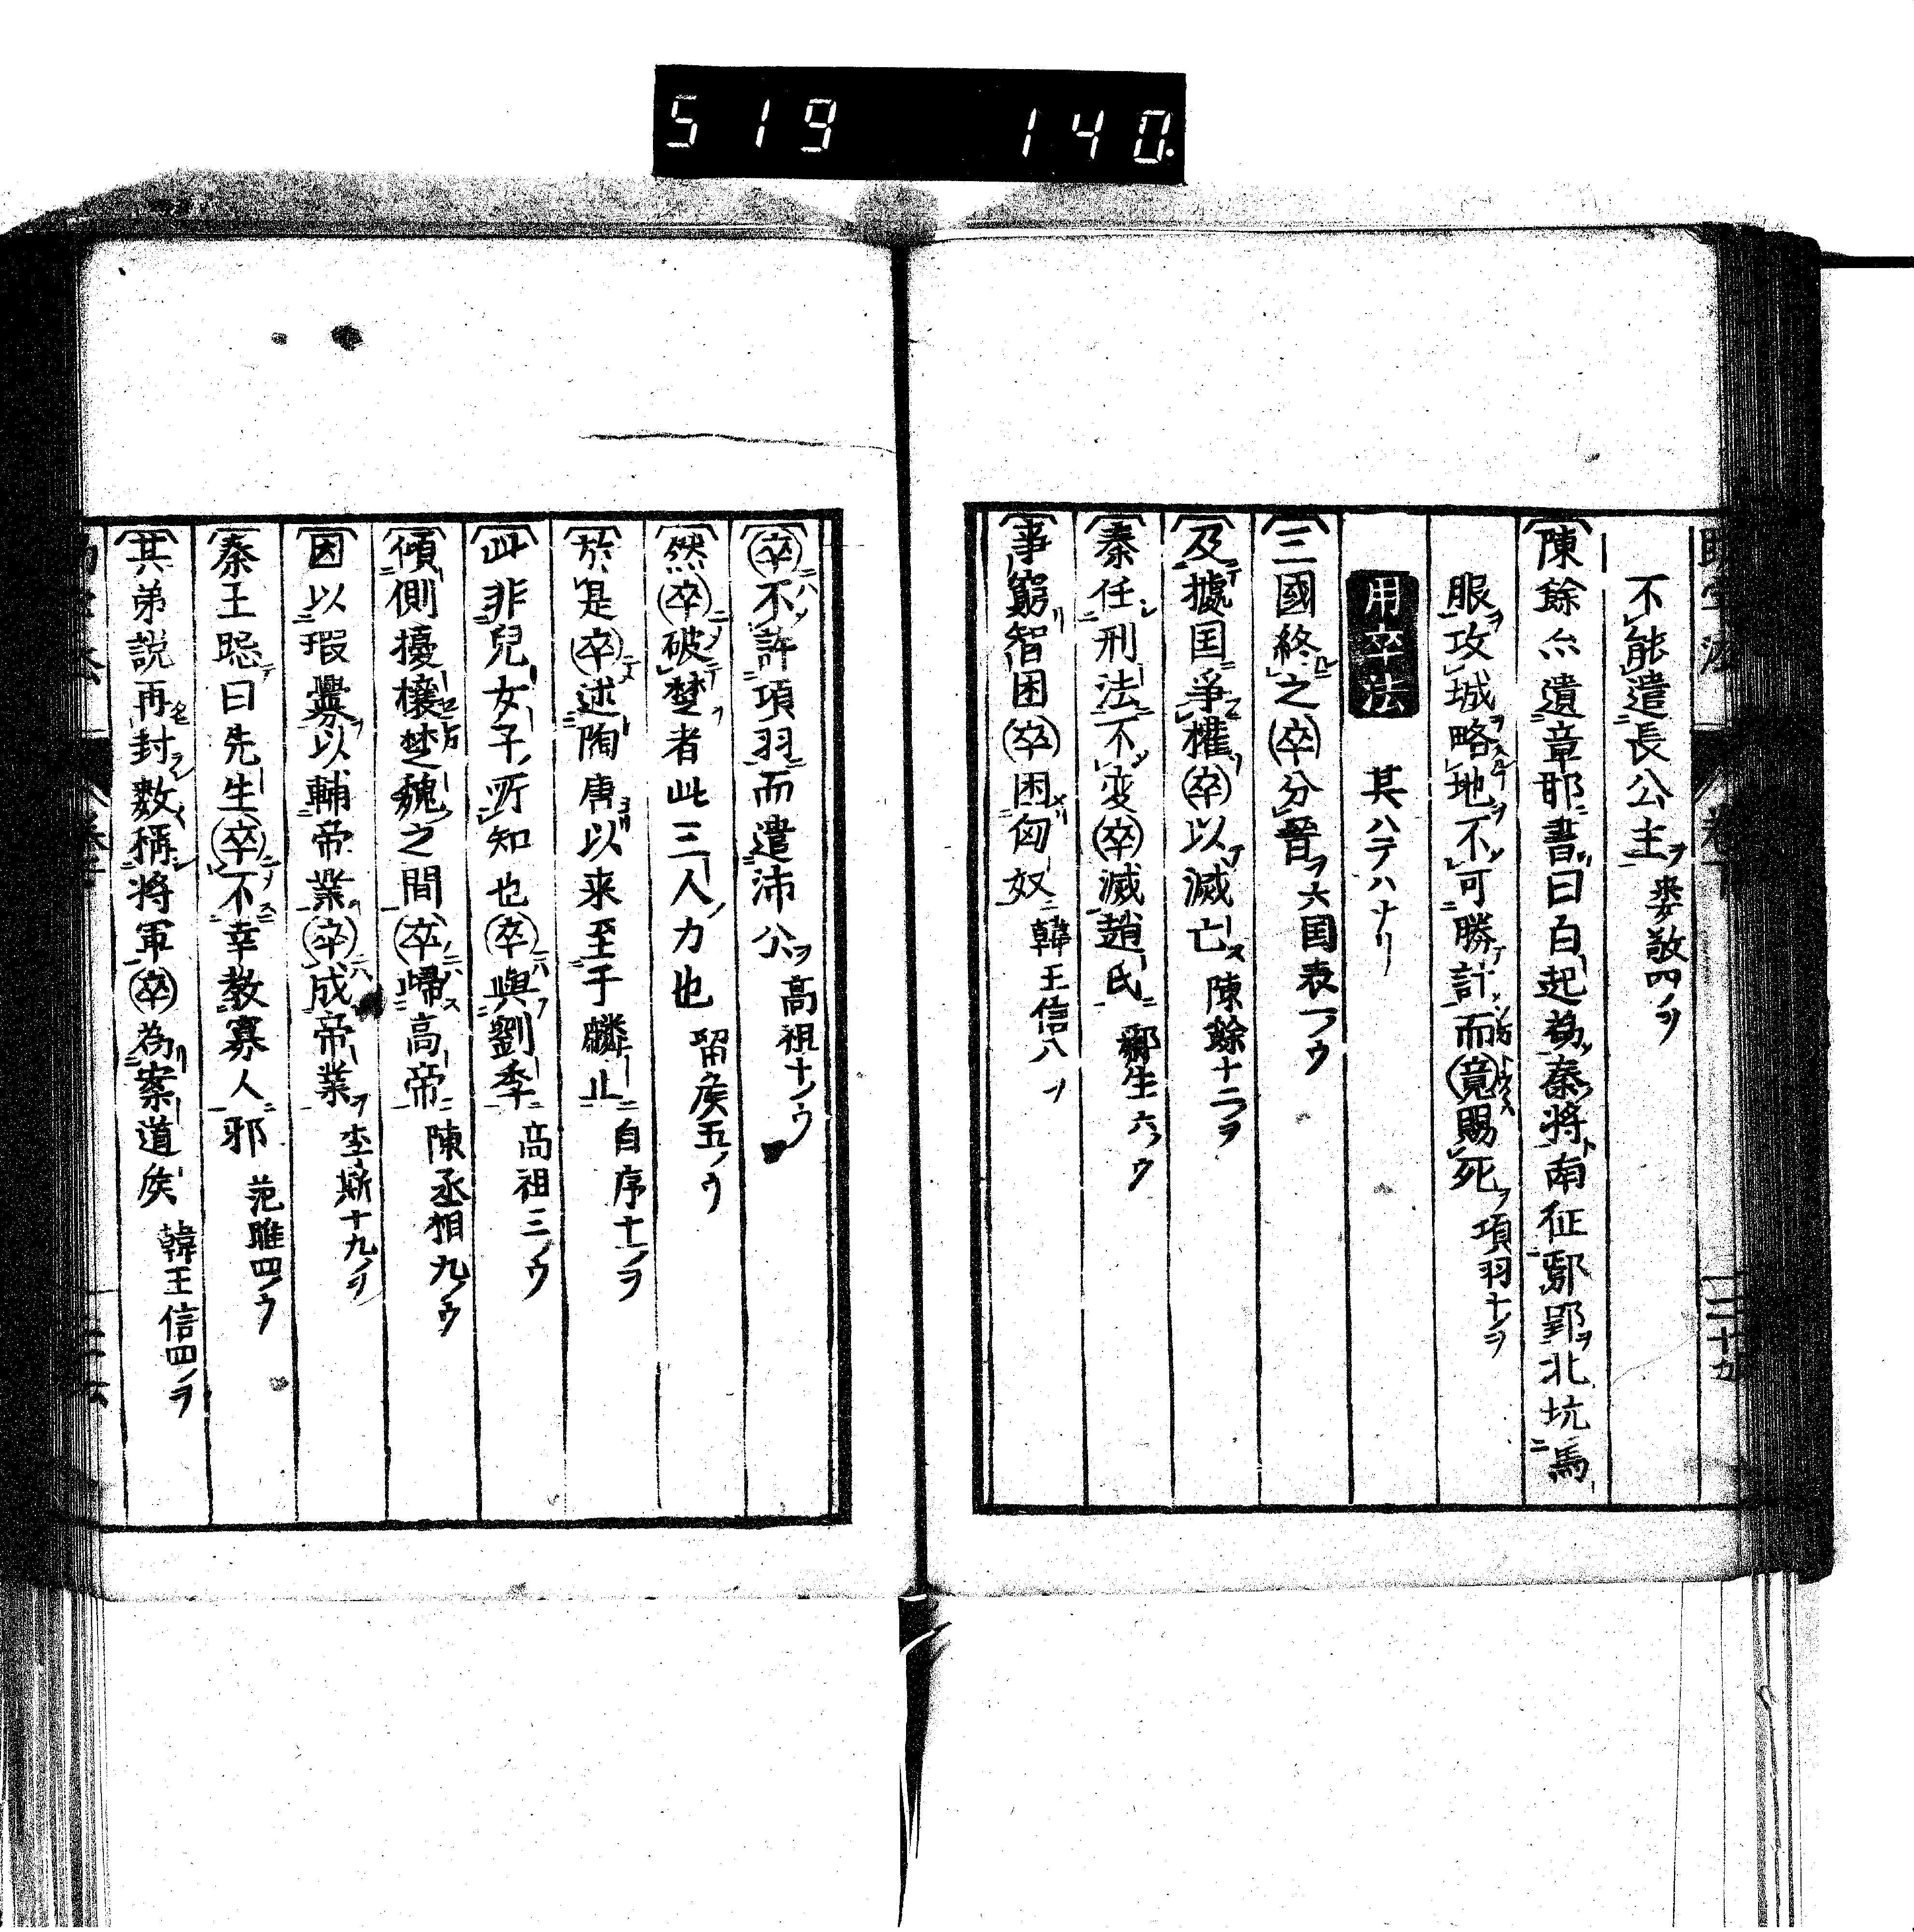 519 140.
不能遣長公主 婁敬四ノヲ
陳餘亦遺章邯書曰白起為秦將南征鄢郢北坑馬
服攻城略地不可勝計而竟賜死 項羽十ノヲ
用卒法 其ハテハナリ
三國終之卒分晉 六国表一ノウ
及據国爭權卒以滅亡 陳餘十二ノヲ
秦任刑法不変卒滅趙氏 酈生六ノウ
事窮智困卒困匈奴 韓王信八ノ
卒不許項羽而遣沛公 高祖十ノウ
然卒破楚者此三人力也 留侯五ノウ
於是卒述陶唐以来至于麟止 自序十一ノヲ
此非兒女子所知也卒與劉季 高祖三ノウ
傾側擾攘楚魏之間卒歸高帝 陳丞相九ノウ
因以瑕釁以輔帝業卒成帝業 李斯十九ノヲ
秦王跽曰先生卒不幸教寡人邪 范雎四ノウ
其弟説再封数稱将軍卒為案道侯 韓王信四ノヲ